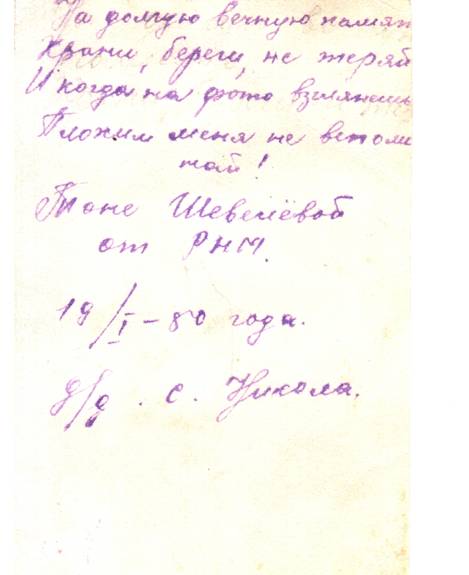 На долгую вечную памят
Храни, береги, не теряй
И когда на фото взглянешь
Плохим меня не вспоми
най!
Тоне Шевелёвой
от РНМ.
19/I – 80 года.
д/д. с. Никола.